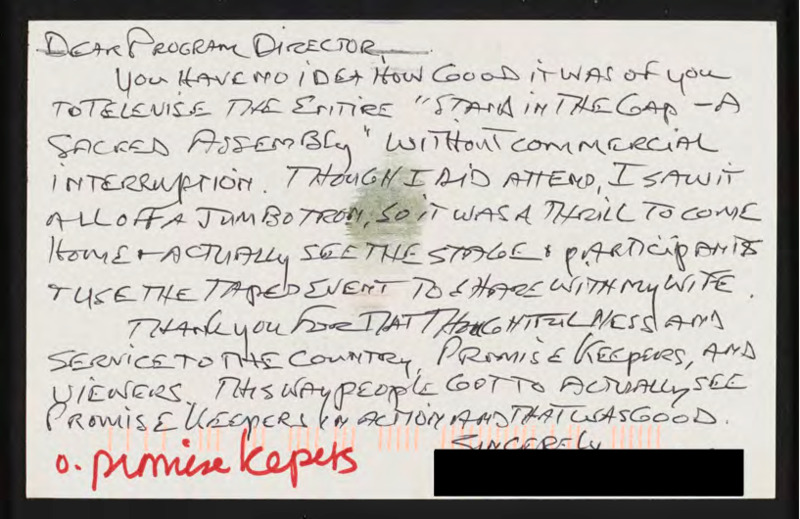 DEAR PROGRAM DIRECTOR,
YOU HAVE NO IDEA HOW GOOD IT WAS OF YOU
TO TELEVISE THE ENTIRE "STAND IN THE GAP - A
SACRED ASSEMBLY" WITHOUT COMMERCIAL
INTERRUPTION. THOUGH I DID ATTEND, I SAW IT
ALL OFF A JUMBOTRON, SO IT WAS A THRILL TO COME
HOME & ACTUALLY SEE THE STAGE & PARTICIPANTS
& USE THE TAPED EVENT TO SHARE WITH MY WIFE.
THANK YOU FOR THAT THOUGHTFULNESS AND
SERVICE TO THE COUNTRY, PROMISE KEEPERS, AND
VIEWERS. THIS WAY PEOPLE GOT TO ACTUALLY SEE
PROMISE KEEPERS IN ACTION AND THAT WAS GOOD.
SINCERELY
o. promise kepers